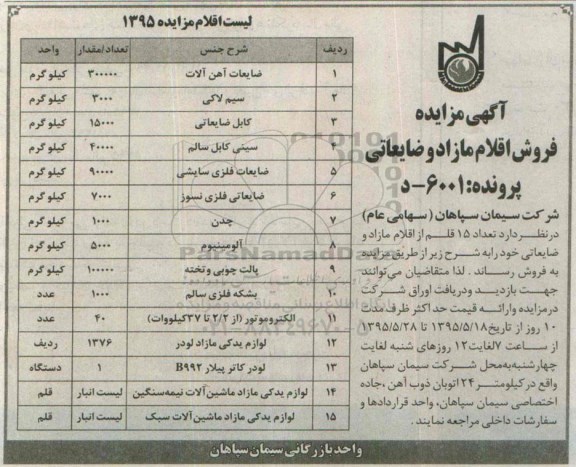 آگهی مزایده
فروش اقلام مازاد و ضایعاتی
پرونده: ۶۰۰۱-د
شرکت سیمان سپاهان (سهامی عام)
در نظر دارد تعداد ۱۵ قلم از اقلام مازاد و
ضایعاتی خود را به شرح زیر از طریق مزایده
به فروش رساند. لذا متقاضیان می‌توانند
جهت بازدید و دریافت اوراق شرکت
در مزایده و ارائه قیمت حداکثر ظرف مدت
۱۰ روز از تاریخ ۱۳۹۵/۵/۱۸ تا ۱۳۹۵/۵/۲۸
از ساعت ۷ لغایت ۱۲ روزهای شنبه لغایت
چهارشنبه به محل شرکت سیمان سپاهان
واقع در کیلومتر ۲۴ اتوبان ذوب آهن، جاده
اختصاصی سیمان سپاهان، واحد قراردادها و
سفارشات داخلی مراجعه نمایند.
لیست اقلام مزایده ۱۳۹۵
ردیف شرح جنس تعداد/مقدار واحد
۱ ضایعات آهن آلات ۳۰۰۰۰۰ کیلو گرم
۲ سیم لاکی ۳۰۰۰ کیلو گرم
۳ کابل ضایعاتی ۱۵۰۰۰ کیلو گرم
۴ سینی کابل سالم ۴۰۰۰۰ کیلو گرم
۵ ضایعات فلزی سایشی ۹۰۰۰۰ کیلو گرم
۶ ضایعاتی فلزی نسوز ۷۰۰۰ کیلو گرم
۷ چدن ۱۰۰۰ کیلو گرم
۸ آلومینیوم ۵۰۰۰ کیلو گرم
۹ پالت چوبی و تخته ۱۰۰۰۰۰ کیلو گرم
۱۰ بشکه فلزی سالم ۱۰۰۰ عدد
۱۱ الکتروموتور (از ۲/۲ تا ۳۷ کیلووات) ۴۰ عدد
۱۲ لوازم یدکی مازاد لودر ۱۳۷۶ ردیف
۱۳ لودر کاتر پیلار B۹۹۲ ۱ دستگاه
۱۴ لوازم یدکی مازاد ماشین آلات نیمه سنگین لیست انبار قلم
۱۵ لوازم یدکی مازاد ماشین آلات سبک لیست انبار قلم
واحد بازرگانی سیمان سپاهان
ParsNamadData